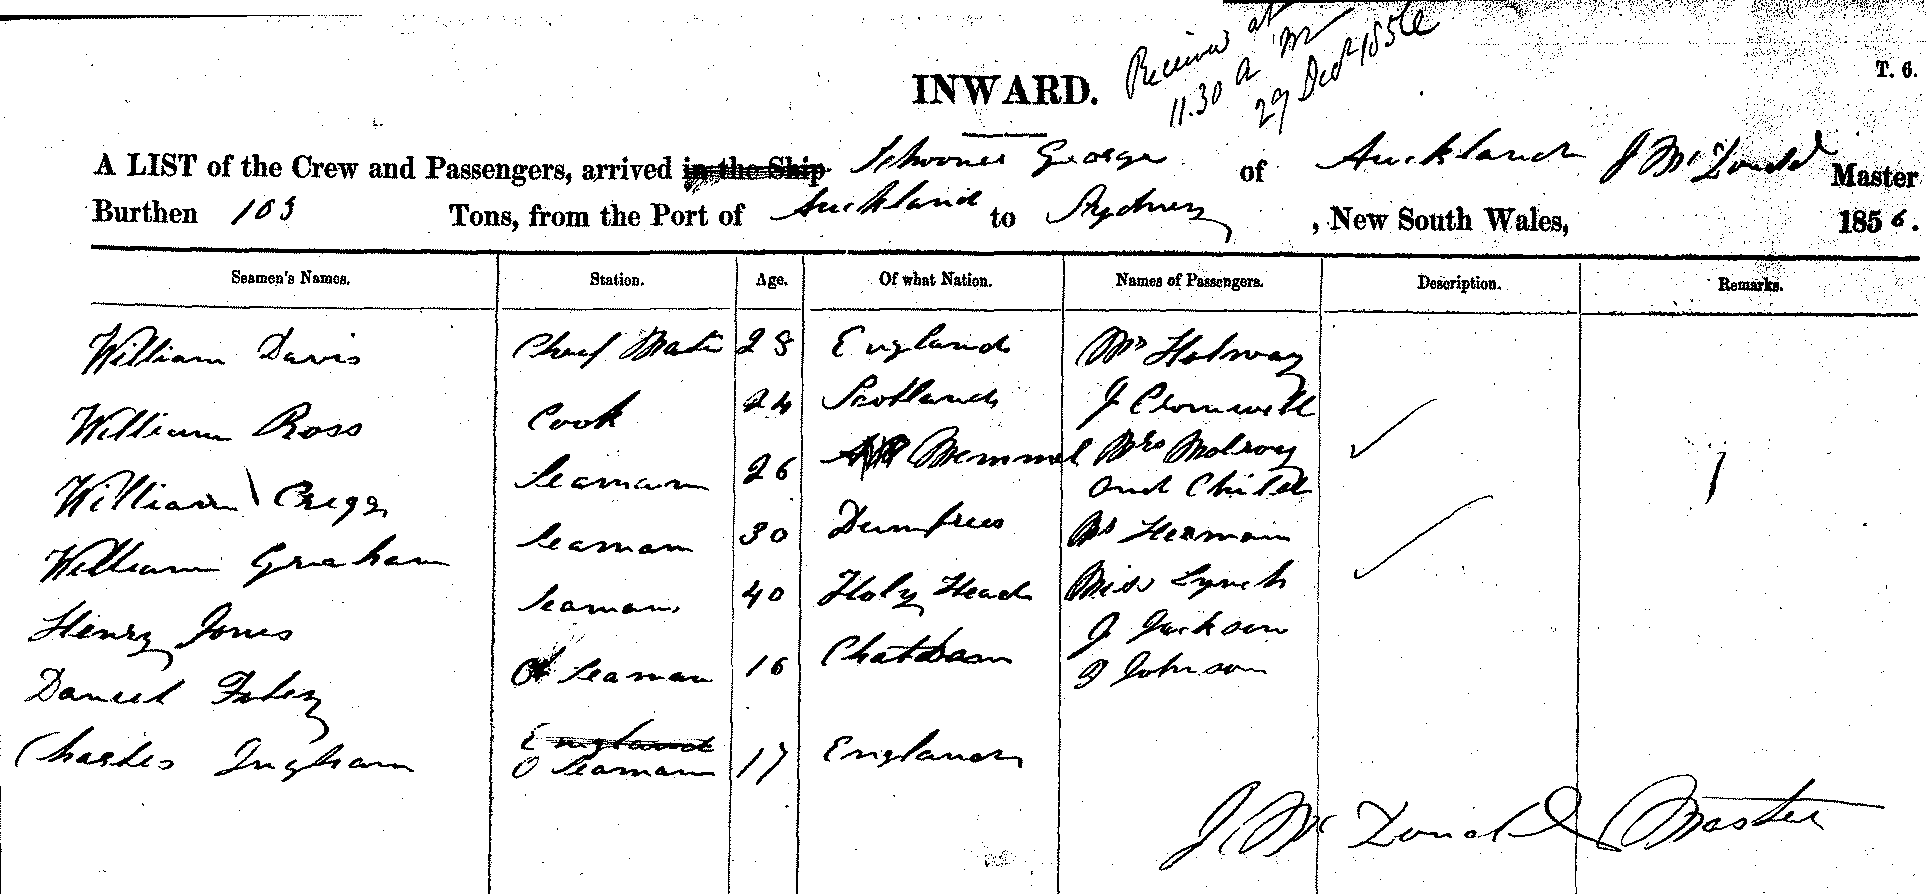 Received at
11.30 A M
29 Decr 1856
T. 6.
INWARD.
A LIST of the Crew and Passengers, arrived in the Ship Schooner George of Auckland J McDonald Master
Burthen 103 Tons, from the Port of Auckland to Sydney, New South Wales, 1856.
Seamen's Names. Station. Age. Of what Nation. Names of Passengers. Description. Remarks.
William Davis Chief Mate 28 England Mr Holway
William Ross Cook 24 Scotland J Cromwell
William Seaman 26 Memmel Mrs
and Child
William Graham Seaman 30 Dumfrees Herman
Henry Jones Seaman 40 Holy Head Miss Lynch
J Jackson
Daniel Foley O Seaman 16 Chatham J Johnson
England
Charles Ingham O Seaman 17 England
J McDonald Master